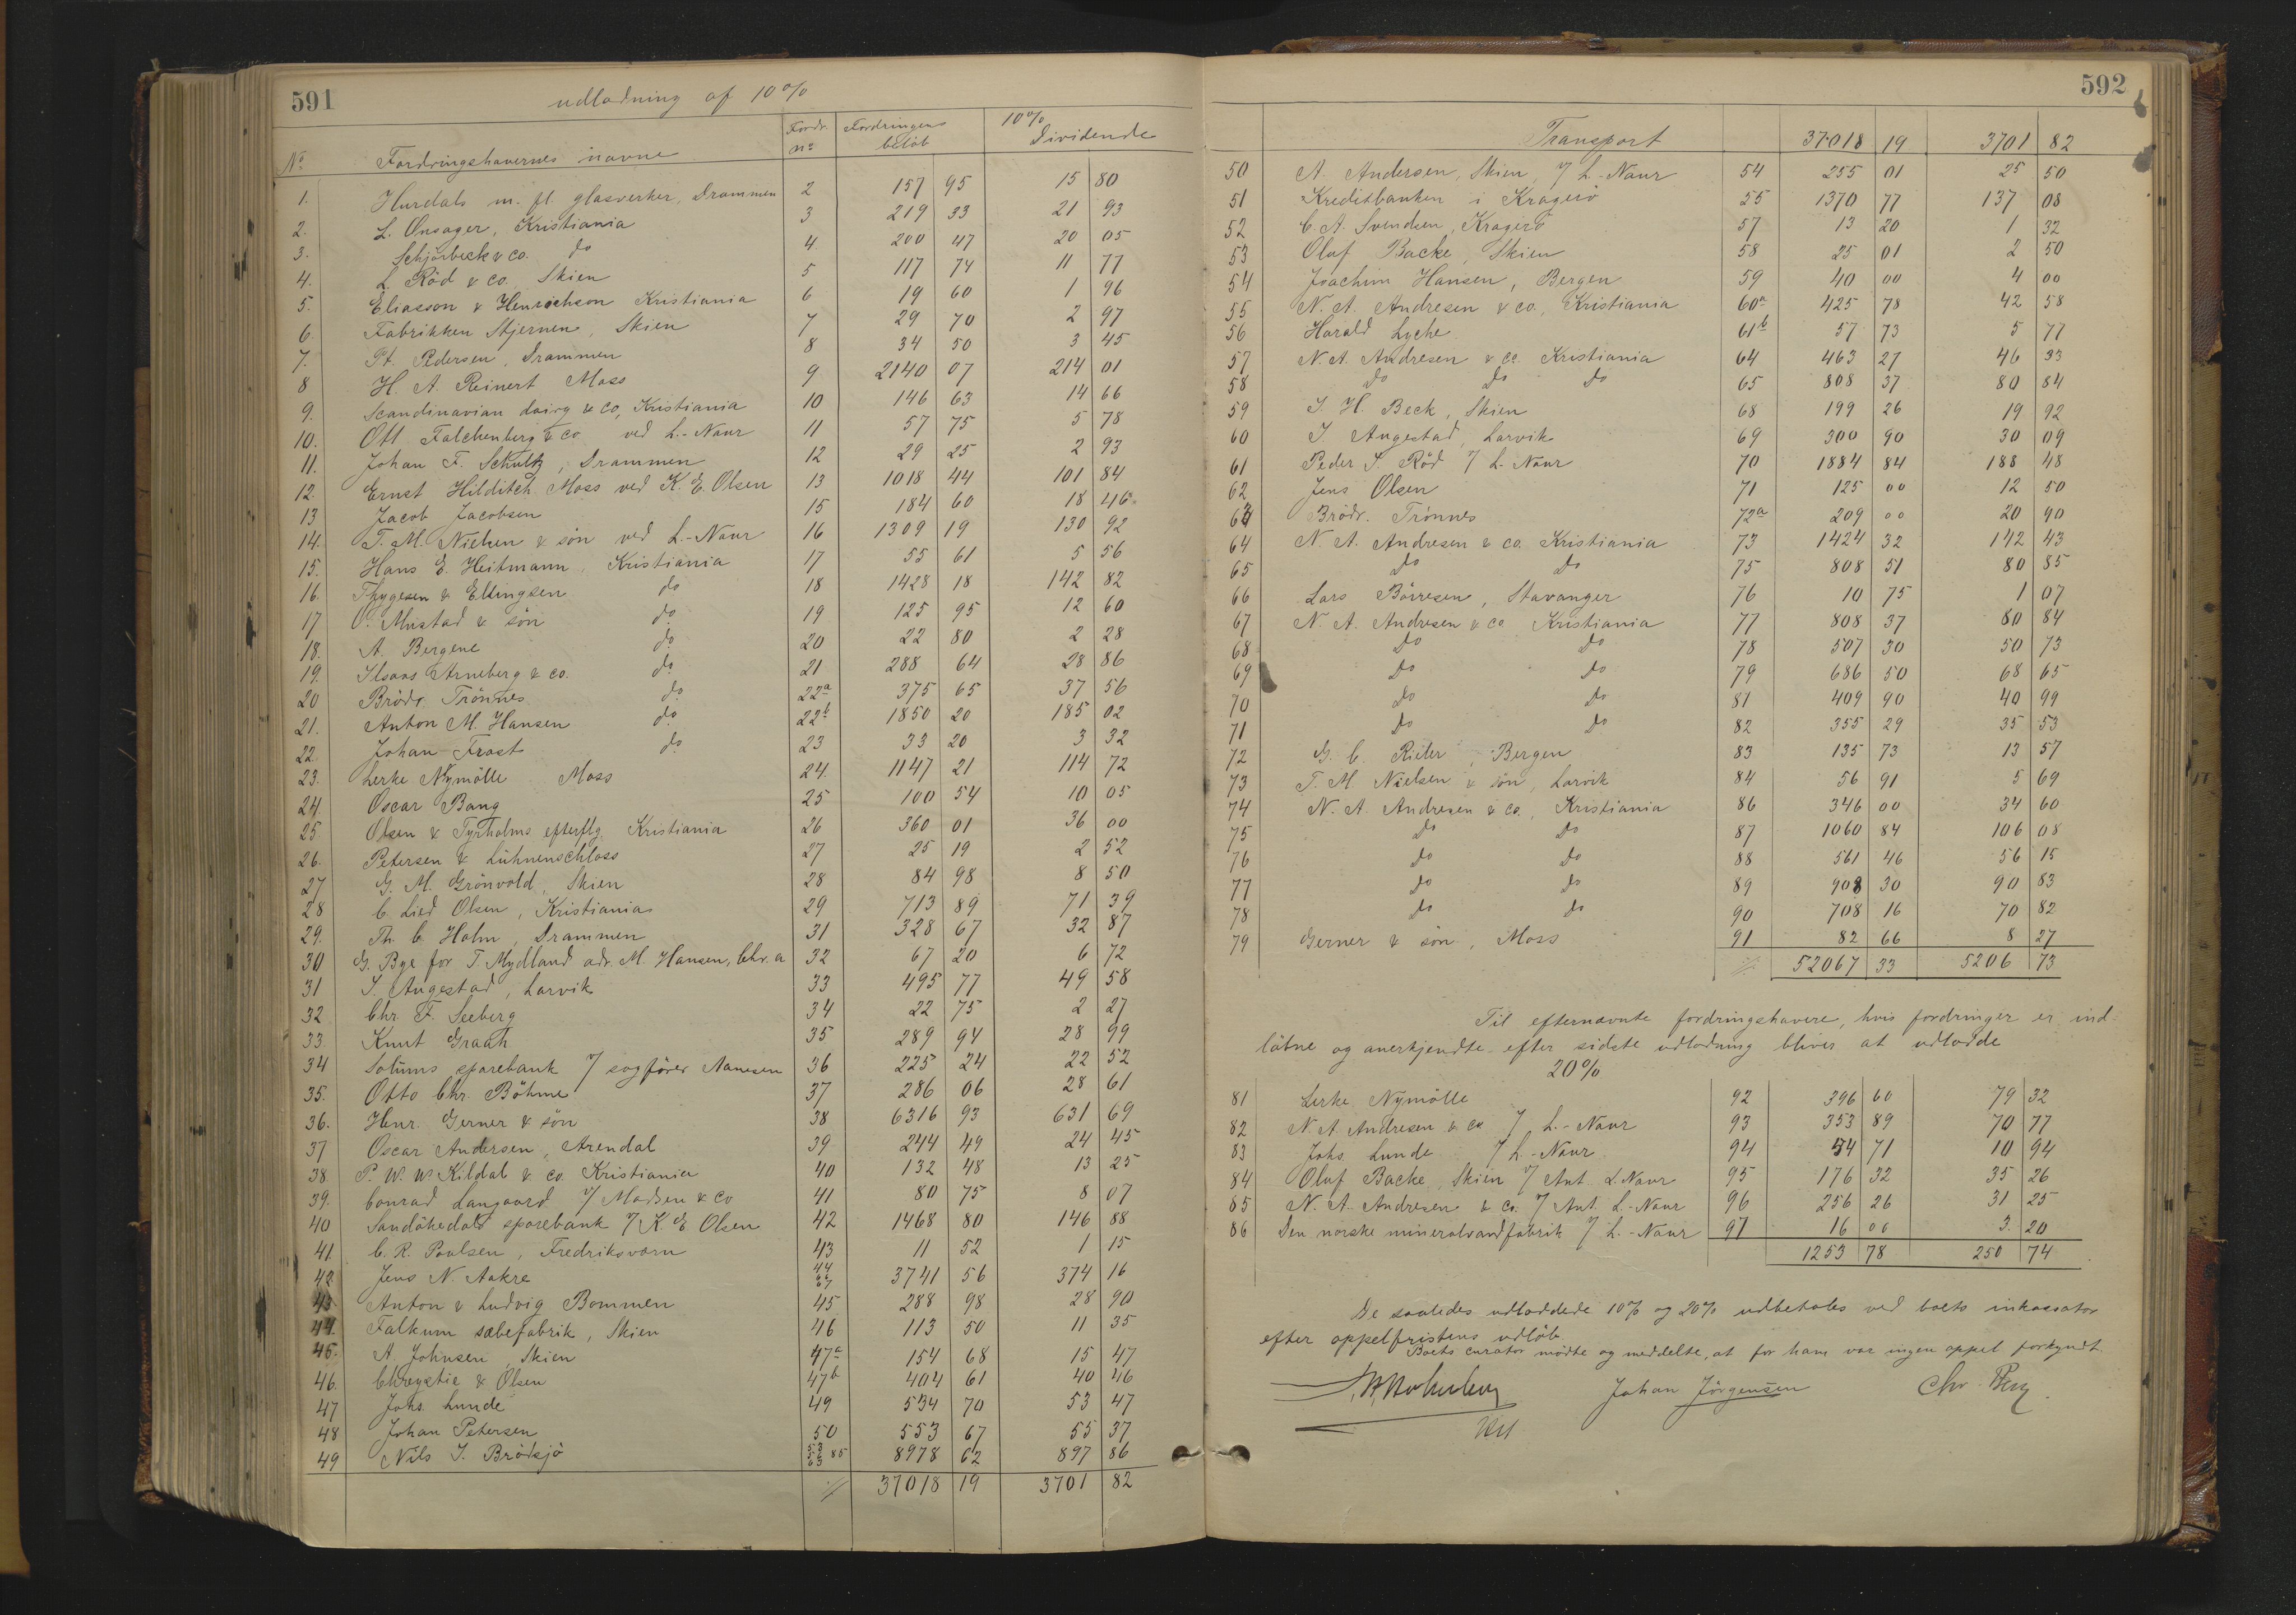 591
udlodning af 10%
No. Fordringshavernes navne Fordr. no Fordringens beløb 10% Dividende
1. Hurdals m. fl. glasverker, Drammen 2 157 95 15 80
2. L. Onsager, Kristiania 3 219 33 21 93
3. Schjørbeck & co. do 4 200 47 20 05
4. L. Röd & co. Skien 5 117 74 11 77
5. Eliasson & Henrichson Kristiania 6 19 60 1 96
6. Fabrikken Stjernen, Skien 7 29 70 2 97
7. Pt. Pedersen, Drammen 8 34 50 3 45
8 H. A. Reinert Moss 9 2140 07 214 01
9. Scandinavian dairy & co, Kristiania 10 146 63 14 66
10. Ott. Falchenberg & co ved L.-Naur 11 57 75 5 78
11. Johan F. Schultz, Drammen 12 29 25 2 93
12. Ernst Hilditch Moss ved K. E. Olsen 13 1018 44 101 84
13 Jacob Jacobsen 15 184 60 18 46
14. T. M. Nielsen & sön ved L.-Naur 16 1309 19 130 92
15. Hans E. Heitmann, Kristiania 17 55 61 5 56
16. Thygesen & Ellingsen do 18 1428 18 142 82
17 O. Mustad & sön do 19 125 95 12 60
18. A. Bergene do 20 22 80 2 28
19. Ilsaas Arneberg & co. do 21 288 64 28 86
20 Brödr. Trönnes do 22a 375 65 37 56
21. Anton M. Hansen do 22b 1850 20 185 02
22. Johan Frost do 23 33 20 3 32
23. Lerke Nymölle Moss 24. 1147 21 114 72
24. Oscar Bang 25 100 54 10 05
25. Olsen & Tyrholms efterflg. Kristiania 26 360 01 36 00
26. Petersen & Lühnenschloss 27 25 19 2 52
27 G. M. Grönvold, Skien 28 84 98 8 50
28 C. Lied Olsen, Kristiania 29 713 89 71 39
29. Th. C. Holm, Drammen 31 328 67 32 87
30 G. Bye for T. Mydland adr. M. Hansen, Chr.a 32 67 20 6 72
31 J. Angestad, Larvik 33 495 77 49 58
32 Chr. F. Seeberg 34 22 75 2 27
33. Knut Graah 35 289 94 28 99
34 Solums sparebank 7 sagförer Aanesen 36 225 24 22 52
35. Otto Chr. Böhme 37 286 06 28 61
36. Henr. Gerner & sön 38 6316 93 631 69
37 Oscar Andersen, Arendal 39 244 49 24 45
38 P. W. W. Kildal & co. Kristiania 40 132 48 13 25
39. Conrad Langaard 7 Madsen & Co 41 80 75 8 07
40 Sandökedals sparebank 7 K. E. Olsen 42 1468 80 146 88
41. C. R. Poulsen, Fredriksvarn 43 11 52 1 15
42 Jens N. Aakre 44 66 67 3741 56 374 16
43 Anton & Ludvig Bommen 45 288 98 28 90
44. Falkum sæbefabrik, Skien 46 113 50 11 35
45. A. Johnsen, Skien 47a 154 68 15 47
46. Chrystie & Olsen 47b 404 61 40 46
47 Johs. Lunde 49 534 70 53 47
48 Johan Petersen 50 553 67 55 37
49 Nils J. Brödsjö 53 63 85 8978 62 897 86
37018 19 3701 82
592
Transport 37018 19 3701 82
50 A. Andersen, Skien, 7 L.-Naur 54 255 01 25 50
51 Kreditbanken i Kragerö 55 1370 77 137 08
52 C. A. Svendsen, Kragerö 57 13 20 1 32
53 Oluf Backe, Skien 58 25 01 2 50
54 Joachim Hansen, Bergen 59 40 00 4 00
55 N. A. Andresen & co., Kristiania 60a 425 78 42 58
56 Harald Lyche 61b 57 73 5 77
57 N. A. Andresen & co. Kristiania 64 463 27 46 33
58 do do do 65 808 37 80 84
59 J. H. Beck, Skien 68 199 26 19 92
60 J. Angestad, Larvik 69 300 90 30 09
61 Peder S. Röd 7 L.-Naur 70 1884 84 188 48
62 Jens Olsen 71 125 00 12 50
63 Brödr. Trönnes 72a 209 00 20 90
64 N. A. Andresen & co. Kristiania 73 1424 32 142 43
65 do do 75 808 51 80 85
66 Lars Börresen, Stavanger 76 10 75 1 07
67 N. A. Andresen & co Kristiania 77 808 37 80 84
68 do do 78 507 30 50 73
69 do do 79 686 50 68 65
70 do do 81 409 90 40 99
71 do do 82 355 29 35 53
72 G. C. Rieber, Bergen 83 135 73 13 57
73 T. M. Nielsen & sön, Larvik 84 56 91 5 69
74 N. A. Andresen & co., Kristiania 86 346 00 34 60
75 do do 87 1060 84 106 08
76 do do 88 561 46 56 15
77 do do 89 908 30 90 83
78 do do 90 708 16 70 82
79 Gerner & sön, Moss 91 82 66 8 27
52067 33 5206 73
Til efternævnte fordringshavere, hvis fordringer er ind-
løbne og anerkjendte efter sidste udlodning bliver at udlodde
20%
81 Lerke Nymölle 92 396 60 79 32
82 N. A. Andresen & co 7 L.-Naur 93 353 89 70 77
83 Johs. Lunde 7 L.-Naur 94 54 71 10 94
84 Oluf Backe, Skien 7 Ant. L.Naur 95 176 32 35 26
85 N. A. Andresen & co. 7 Ant. L.-Naur 96 256 26 31 25
86 Den norske mineralvandfabrik 7 L.-Naur 97 16 00 3. 20
1253 78 250 74
De saaledes udloddede 10% og 20% udbetales ved boets inkassator
efter appelfristens udløb
Boets curator mødte og meddelte, at for ham var ingen appel forkyndt.
Johan Jörgensen Chr.